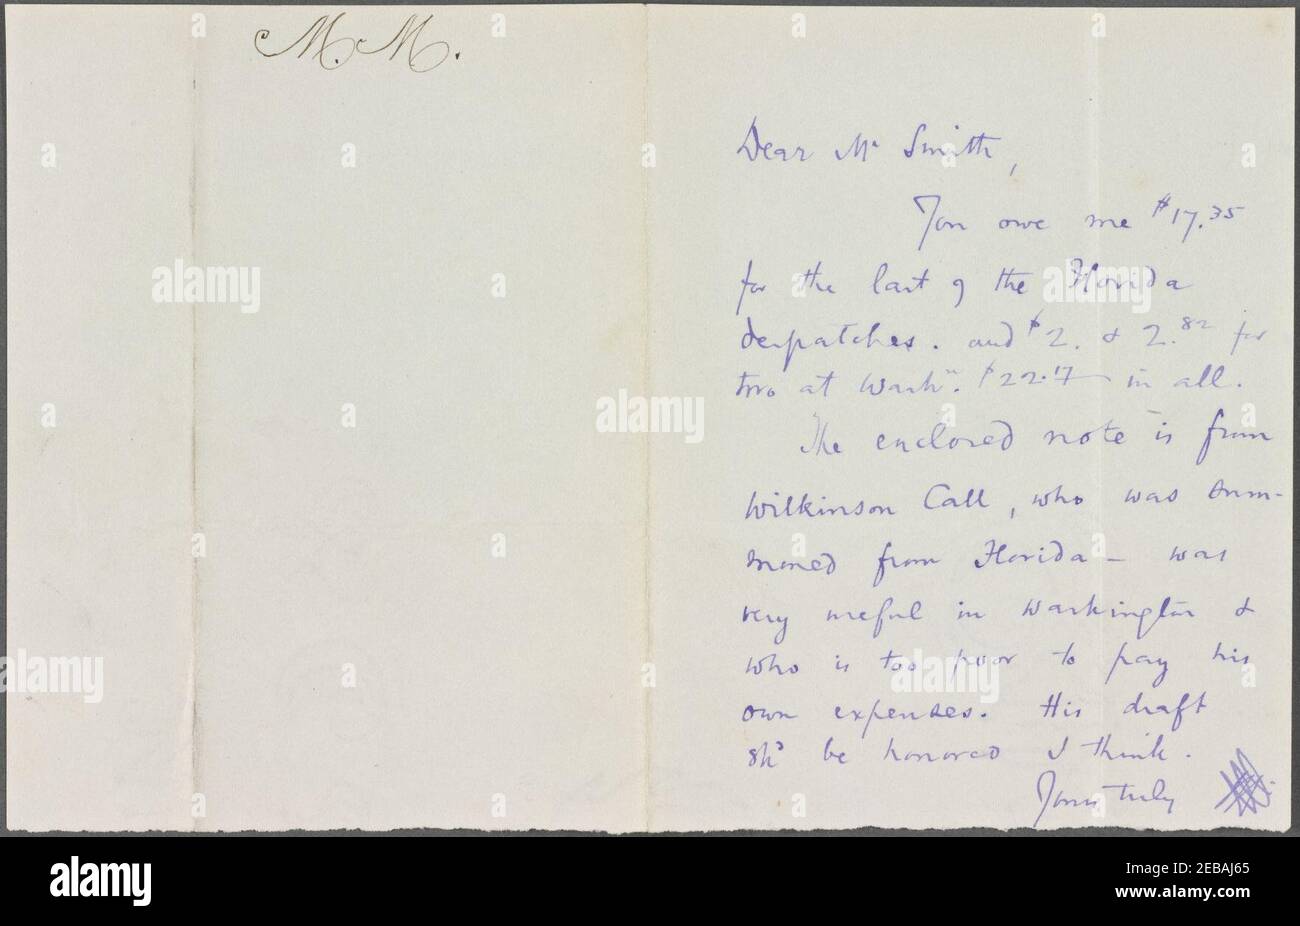 M. M.
Dear Mr Smith,
You owe me $17.35
for the last of the Florida
despatches. and $2. & 2.82 for
two at Washn. $22.17 in all.
The enclosed note is from
Wilkinson Call, who was sum-
moned from Florida — was
very useful in Washington &
who is too poor to pay his
own expenses. His draft
shd be honored I think.
Yours truly
alamy
Image ID: 2EBAJ65
www.alamy.com